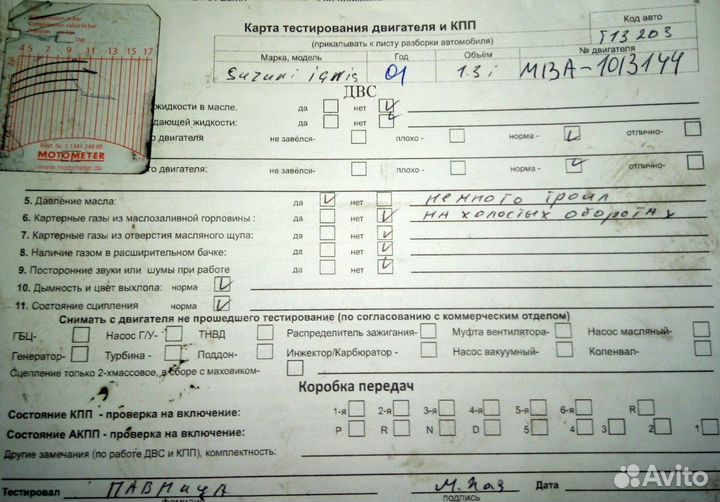 Карта тестирования двигателя и КПП
(прикалывать к листу разборки автомобиля)
Код авто
T13203
Марка, модель Год Объём № двигателя
Suzuki ignis 01 1.3 i M13A-1013144
ДВС
жидкости в масле. да нет
дающей жидкости: да нет
о двигателя: не завёлся- плохо - норма - отлично-
двигателя: не завёлся- плохо - норма - отлично-
5. Давление масла: да нет немного троил
6. Картерные газы из маслозаливной горловины : да нет на холостых оборотах
7. Картерные газы из отверстия масляного щупа: да нет
8. Наличие газом в расширительном бачке: да нет
9. Посторонние звуки или шумы при работе да нет
10. Дымность и цвет выхлопа: норма
11. Состояние сципления норма
Снимать с двигателя не прошедшего тестирование (по согласованию с коммерческим отделом)
ГБЦ- Насос Г/У- ТНВД Распределитель зажигания- Муфта вентилятора- Насос масляный-
Генератор- Турбина - Поддон- Инжектор/Карбюратор - Насос вакуумный- Коленвал-
Сцепление только 2-хмассовое, в сборе с маховиком-
Коробка передач
Состояние КПП - проверка на включение: 1-я 2-я 3-я 4-я 5-я 6-я R
Состояние АКПП - проверка на включение: P R N D 5 4 3 2 1
Другие замечания (по работе ДВС и КПП), комплектность:
Тестировал Дата
подпись
4 5 7 9 11 13 15 17
Best. Nr. 5 1341 248 00
MOTOMETER
www.motometer.de
Avito